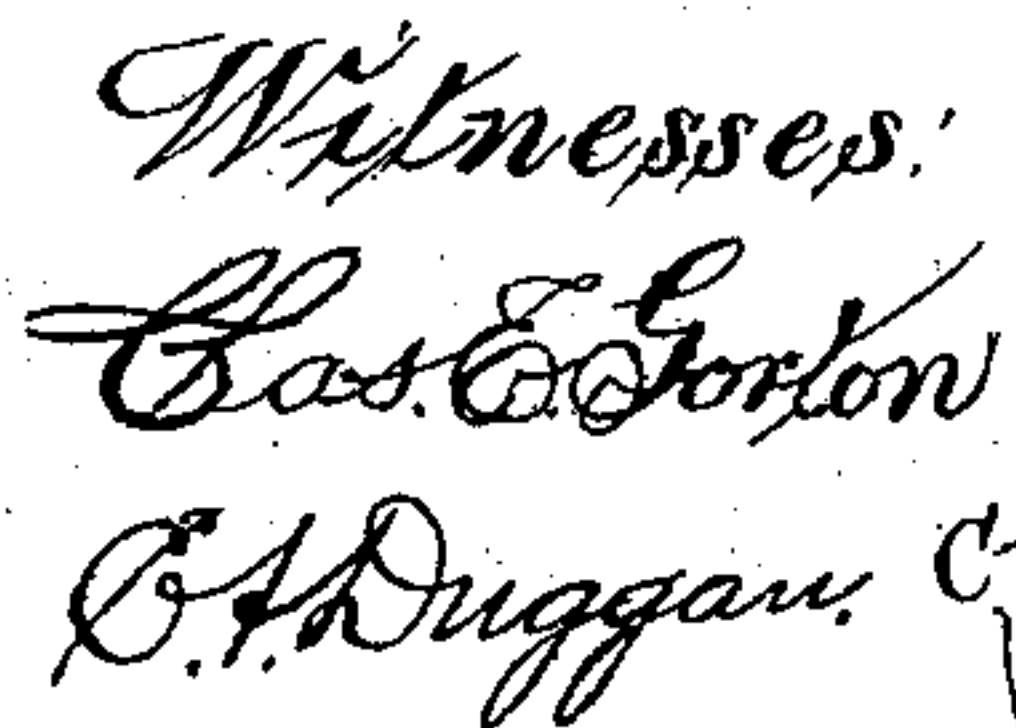 Witnesses:
Chas. E. Gorton
Duggan.